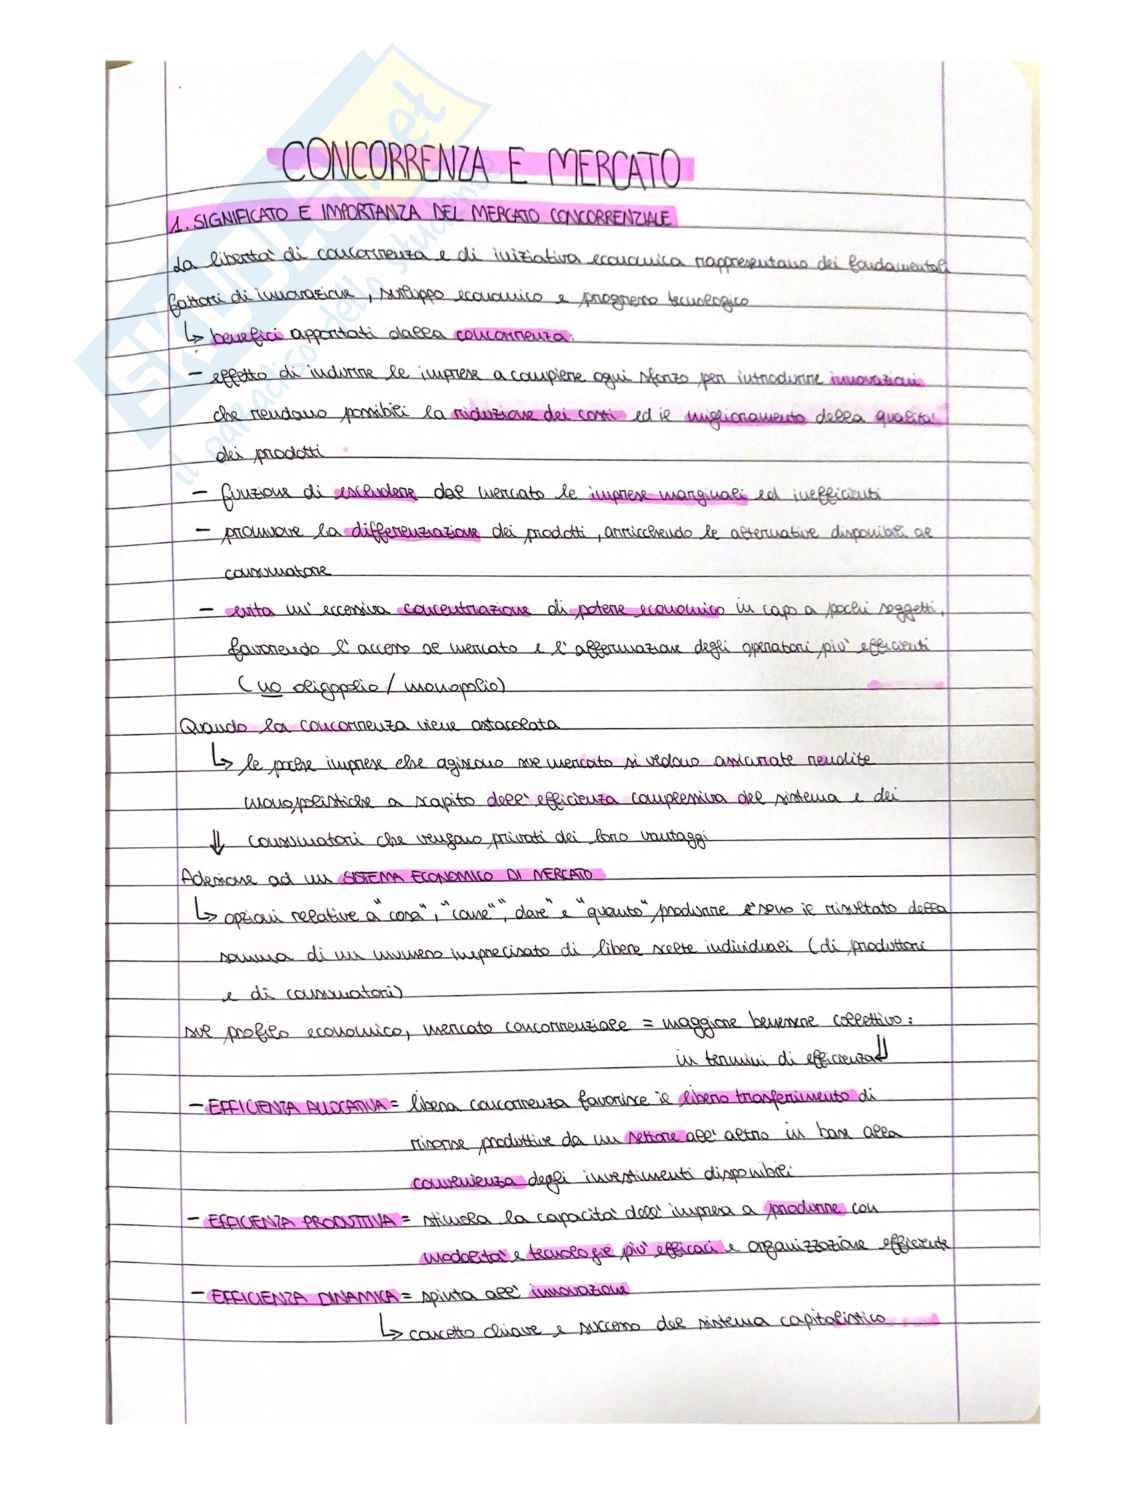 CONCORRENZA E MERCATO
1. SIGNIFICATO E IMPORTANZA DEL MERCATO CONCORRENZIALE
La libertà di concorrenza e di iniziativa economica rappresentano dei fondamentali
fattori di innovazione, sviluppo economico e progresso tecnologico
↳ benefici apportati dalla concorrenza:
- effetto di indurre le imprese a compiere ogni sforzo per introdurre innovazioni
che rendano possibili la riduzione dei costi ed il miglioramento della qualità
dei prodotti
- funzione di escludere dal mercato le imprese marginali ed inefficienti
- promuove la differenziazione dei prodotti, arricchendo le alternative disponibili al
consumatore
- evita un'eccessiva concentrazione di potere economico in capo a pochi soggetti,
favorendo l'accesso al mercato e l'affermazione degli operatori più efficienti
(no oligopolio / monopolio)
Quando la concorrenza viene ostacolata
↳ le poche imprese che agiscono sul mercato si vedono assicurate rendite
monopolistiche a scapito dell'efficienza complessiva del sistema e dei
⇓ consumatori che vengono privati dei loro vantaggi
Adesione ad un SISTEMA ECONOMICO DI MERCATO
↳ opzioni relative a "cosa", "come", "dove" e "quanto" produrre sono il risultato della
somma di un numero imprecisato di libere scelte individuali (di produttori
e di consumatori)
sul profilo economico, mercato concorrenziale = maggiore benessere collettivo:
in termini di efficienza ⇓
- EFFICIENZA ALLOCATIVA = libera concorrenza favorisce il libero trasferimento di
risorse produttive da un settore all'altro in base alla
convenienza degli investimenti disponibili
- EFFICIENZA PRODUTTIVA = stimola la capacità dell'impresa a produrre con
modalità e tecnologie più efficaci e organizzazione efficiente
- EFFICIENZA DINAMICA = spinta all'innovazione
↳ concetto chiave e successo del sistema capitalistico
SKUOLA.net
il paradiso dello studente